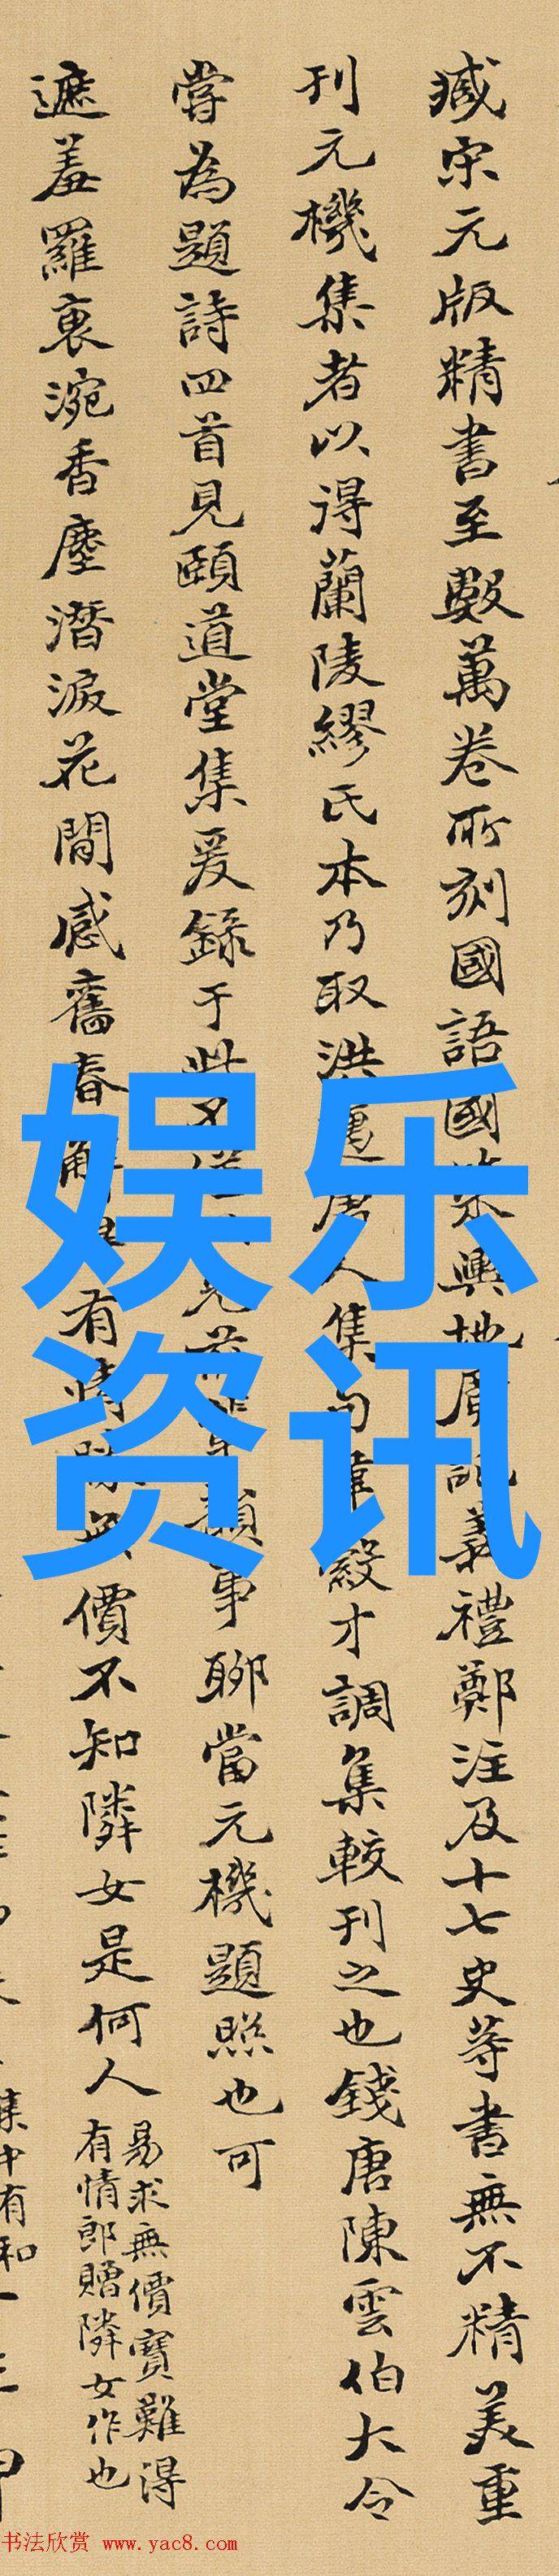 臧宋元版精書至數萬卷所刻國語國策輿地廣記義禮鄭注及十七史等書無不精美重
刊元機集者以得蘭陵繆氏本乃取洪邁唐人集句韋縠才調集較刊之也錢唐陳雲伯大令
嘗為題詩四首見頤道堂集爰錄于此不僅 元 事聊當元機題照也可
遮羞羅裏涴香塵潛淚花間感舊春解 有情 無價不知隣女是何人
易求無價寶難得
有情郎贈隣女作也
集中有和
娱乐
资讯
书法欣赏 www.yac8.com